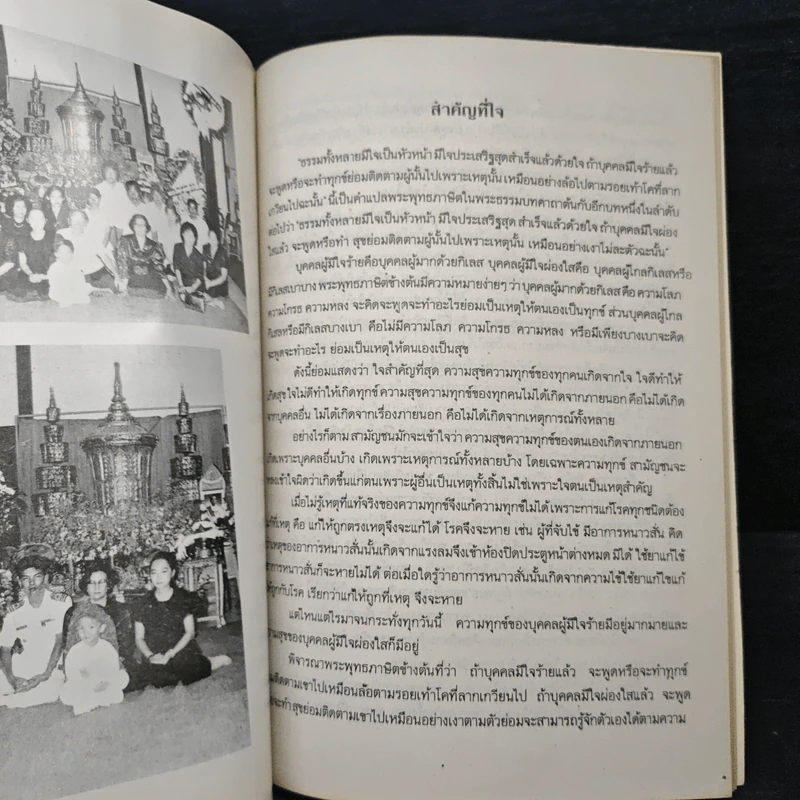 สำคัญที่ใจ
"ธรรมทั้งหลายมีใจเป็นหัวหน้า มีใจประเสริฐสุดสำเร็จแล้วด้วยใจ ถ้าบุคคลมีใจร้ายแล้ว
จะพูดหรือจะทำทุกข์ย่อมติดตามผู้นั้นไปเพราะเหตุนั้น เหมือนอย่างล้อไปตามรอยเท้าโคที่ลาก
เกวียนไปฉะนั้น" นี้เป็นคำแปลพระพุทธภาษิตในพระธรรมบทคาถาต้นกับอีกบทหนึ่งในลำดับ
ต่อไปว่า "ธรรมทั้งหลายมีใจเป็นหัวหน้า มีใจประเสริฐสุด สำเร็จแล้วด้วยใจ ถ้าบุคคลมีใจผ่อง
ใสแล้ว จะพูดหรือทำ สุขย่อมติดตามผู้นั้นไปเพราะเหตุนั้น เหมือนอย่างเงาไม่ละตัวฉะนั้น"
บุคคลผู้มีใจร้ายคือบุคคลผู้มากด้วยกิเลส บุคคลผู้มีใจผ่องใสคือ บุคคลผู้ไกลกิเลสหรือ
มีกิเลสเบาบาง พระพุทธภาษิตข้างต้นมีความหมายง่ายๆ ว่า บุคคลผู้มากด้วยกิเลส คือ ความโลภ
ความโกรธ ความหลง จะคิดจะพูดจะทำอะไรย่อมเป็นเหตุให้ตนเองเป็นทุกข์ ส่วนบุคคลผู้ไกล
กิเลสหรือมีกิเลสบางเบา คือไม่มีความโลภ ความโกรธ ความหลง หรือมีเพียงบางเบาจะคิด
จะพูดจะทำอะไร ย่อมเป็นเหตุให้ตนเองเป็นสุข
ดังนี้ย่อมแสดงว่า ใจสำคัญที่สุด ความสุขความทุกข์ของทุกคนเกิดจากใจ ใจดีทำให้
เกิดสุข ใจไม่ดีทำให้เกิดทุกข์ ความสุขความทุกข์ของทุกคนไม่ได้เกิดจากภายนอก คือไม่ได้เกิด
จากบุคคลอื่น ไม่ได้เกิดจากเรื่องภายนอก คือไม่ได้เกิดจากเหตุการณ์ทั้งหลาย
อย่างไรก็ตาม สามัญชนมักจะเข้าใจว่า ความสุขความทุกข์ของตนเองเกิดจากภายนอก
เกิดเพราะบุคคลอื่นบ้าง เกิดเพราะเหตุการณ์ทั้งหลายบ้าง โดยเฉพาะความทุกข์ สามัญชนจะ
หลงเข้าใจผิดว่าเกิดขึ้นแก่ตนเพราะผู้อื่นเป็นเหตุทั้งสิ้นไม่ใช่เพราะใจตนเป็นเหตุสำคัญ
เมื่อไม่รู้เหตุที่แท้จริงของความทุกข์จึงแก้ความทุกข์ไม่ได้เพราะการแก้โรคทุกชนิดต้อง
แก้ที่เหตุ คือ แก้ให้ถูกตรงเหตุจึงจะแก้ได้ โรคจึงจะหาย เช่น ผู้ที่จับไข้ มีอาการหนาวสั่น คิด
ว่าเหตุของอาการหนาวสั่นนั้นเกิดจากแรงลมจึงเข้าห้องปิดประตูหน้าต่างหมด มิได้ ใช้ยาแก้ไข้
อาการหนาวสั่นก็จะหายไม่ได้ ต่อเมื่อใดรู้ว่าอาการหนาวสั่นนั้นเกิดจากความไข้ใช้ยาแก้ไขแก้
ให้ถูกกับโรค เรียกว่าแก้ให้ถูกที่เหตุ จึงจะหาย
แต่ไหนแต่ไรมาจนกระทั่งทุกวันนี้ ความทุกข์ของบุคคลผู้มีใจร้ายมีอยู่มากมายและ
ความสุขของบุคคลผู้มีใจผ่องใสก็มีอยู่
พิจารณาพระพุทธภาษิตข้างต้นที่ว่า ถ้าบุคคลมีใจร้ายแล้ว จะพูดหรือจะทำทุกข์
ย่อมติดตามเขาไปเหมือนล้อตามรอยเท้าโคที่ลากเกวียนไป ถ้าบุคคลมีใจผ่องใสแล้ว จะพูด
จะทำสุขย่อมติดตามเขาไปเหมือนอย่างเงาตามตัวย่อมจะสามารถรู้จักตัวเองได้ตามความ